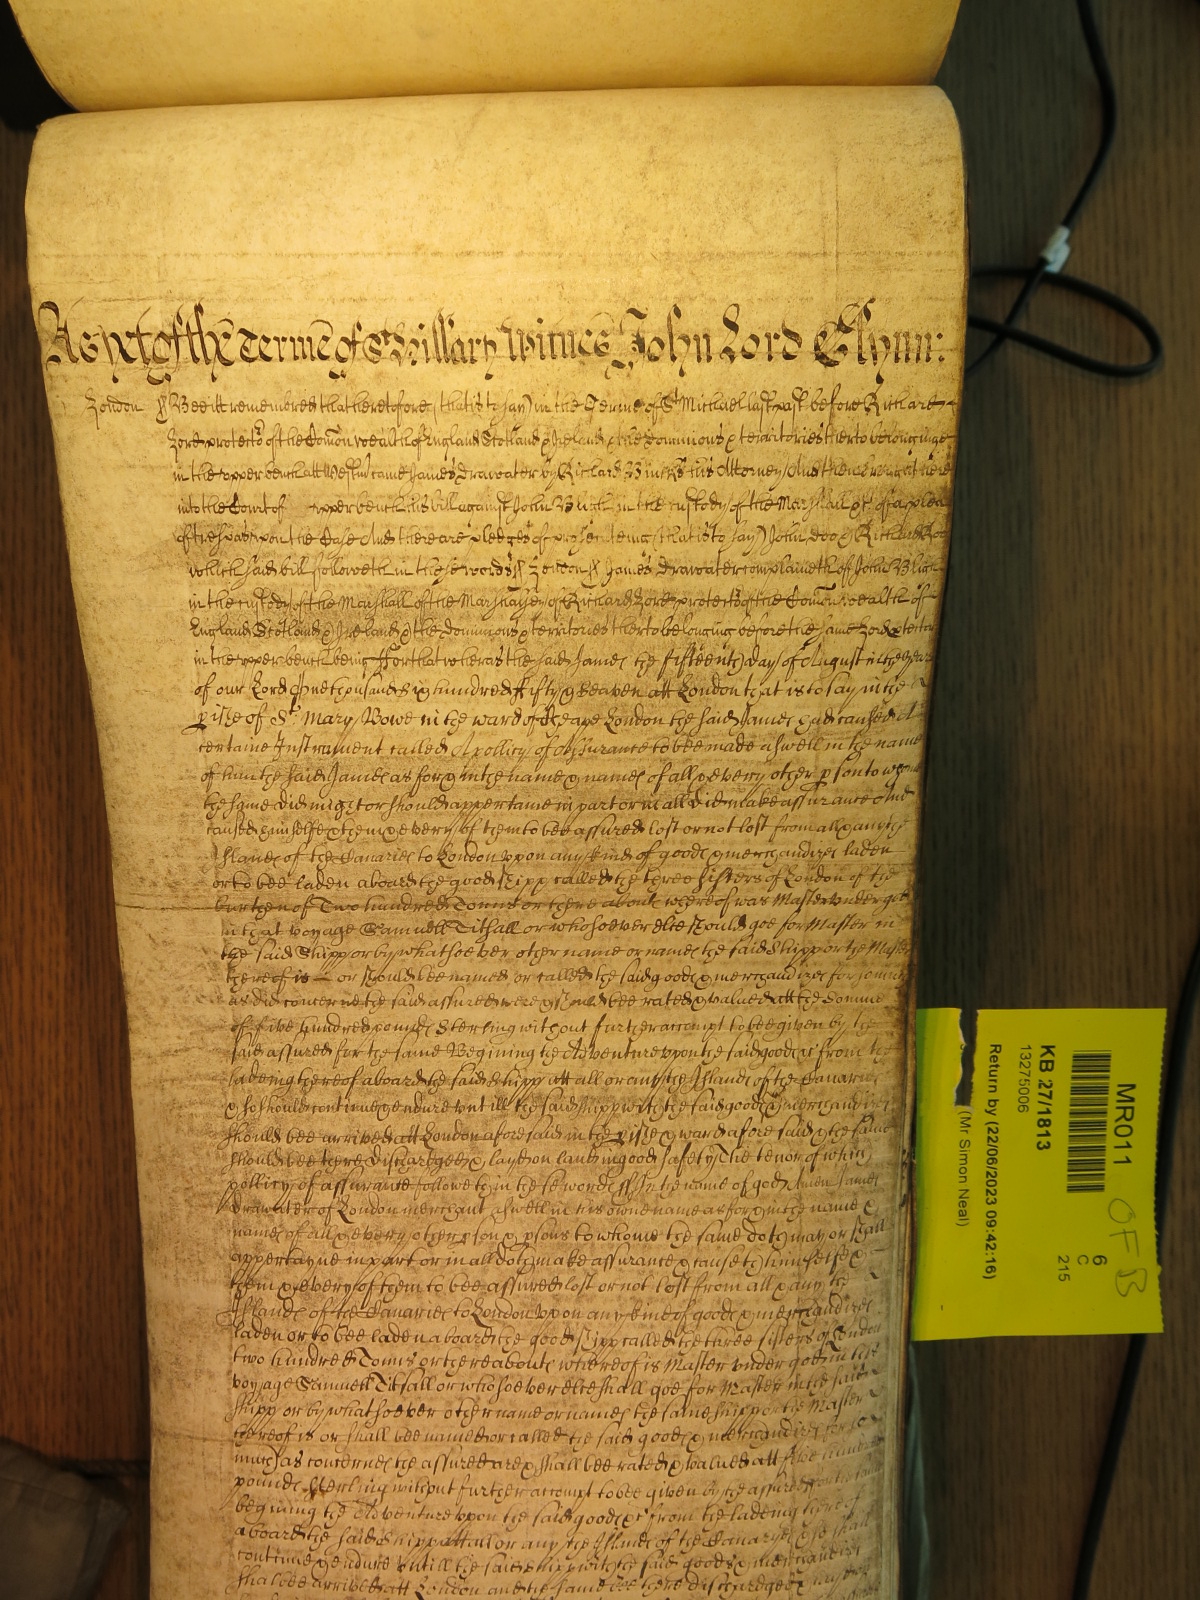 As yet of the Terme of St Hillary Witnes John Lord Glynn:
London ss Bee itt remembred that heretofore (that is to say) in the Terme of St Michael last past before Richard
Lord protector of the Comon wealth of England Scotland & Ireland & the dominions & territories therto belonginge
in the upper bench att Westmr came James Drawater by Richard his Attorney And then brought here
into the Court of upper bench his bill against John in the custody of the Marshall &c of a plea
of trespas upon the Case And there are pledges of prosecuteing (that is to say) John doo & Richard Roo
which said bill followeth in these words ss London ss James Drawater complaineth of John
in the custody of the Marshall of the Marshalsey of Richard Lord protector of the Comon wealth of
England Scotland & Ireland & the dominions & territories therto belonging before the same Lord protector
in the upper bench being ffor that wheras the said James the fifteenth day of August in the yeare
of our Lord One thousand six hundred ffifty & seaven att London that is to say in the
pishe of St Mary Bowe in the ward of Cheape London the said James had caused A
certaine Instrument called A pollicy of Assurance to bee made aswell in the name
of him the said James as for & in the name & names of all & every other pson to whome
the same did might or should appertaine in part or in all did make assurance And
caused himselfe & them & every of them to bee assured lost or not lost from all & any the
Islands of the Canaries to London upon any kind of goods & merchandizes laden
or to bee laden aboard the good Shipp called the three Sisters of London of the
burthen of Two hundred Tonns or there abouts whereof was Master under god
in that voyage Samuell Titsall or whosoever else should goe for Master in
the said Shipp or by whatsoever other name or names the said Shipp or the Master
thereof is or should bee named or called the said goods & merchandizes for so much
as did concerne the said assured were & should bee rated & valued att the somme
of five hundred pounds Sterling without further accompt to bee given by the
said assured for the same Begining the Adventure upon the said goods &c from the
ladeing thereof aboard the said Shipp att all or any the Islands of the Canaries
& so should continue & endure untill the said Shipp with the said goods & merchandizes
should bee arrived att London aforesaid in the pishe & ward aforesaid & the same
should bee there discharged & layd on land in good safety The tenor of which
pollicy of assurance followeth in these words ss In the name of god Amen James
Drawater of London merchant aswell in his owne name as for & in the name &
names of all & every other pson & psons to whome the same doth may or shall
appertayne in part or in all doth make assurance & causeth himselfe &
them & every of them to bee assured lost or not lost from all & any the
Islands of the Canaries to London upon any kind of goods & merchandizes
laden or to bee laden aboard the good Shipp called the three sisters of London
two hundred Tonns or thereabouts whereof is Master under god in this
voyage Samuell Titsall or whosoever else shall goe for Master in the said
Shipp or by whatsoever other name or names the same Shipp or the Master
thereof is or shall bee named or called the said goods & merchandizes for so
much as concernes the assured are & shall bee rated & valued att five hundred
pounds sterling without further accompt to bee given by the assured for the same
begining the Adventure upon the said goods &c from the ladeing thereof
aboard the said Shipp att all or any the Islands of the Canaryes & so shall
continue & endure untill the said Shipp with the said goods & merchandizes
shall bee arrived att London and the same bee there discharged &
MR011
6
C
215
KB 27/1813
13275006
Return by (22/06/2023 09:42:16)
(Mr Simon Neal)
OF B